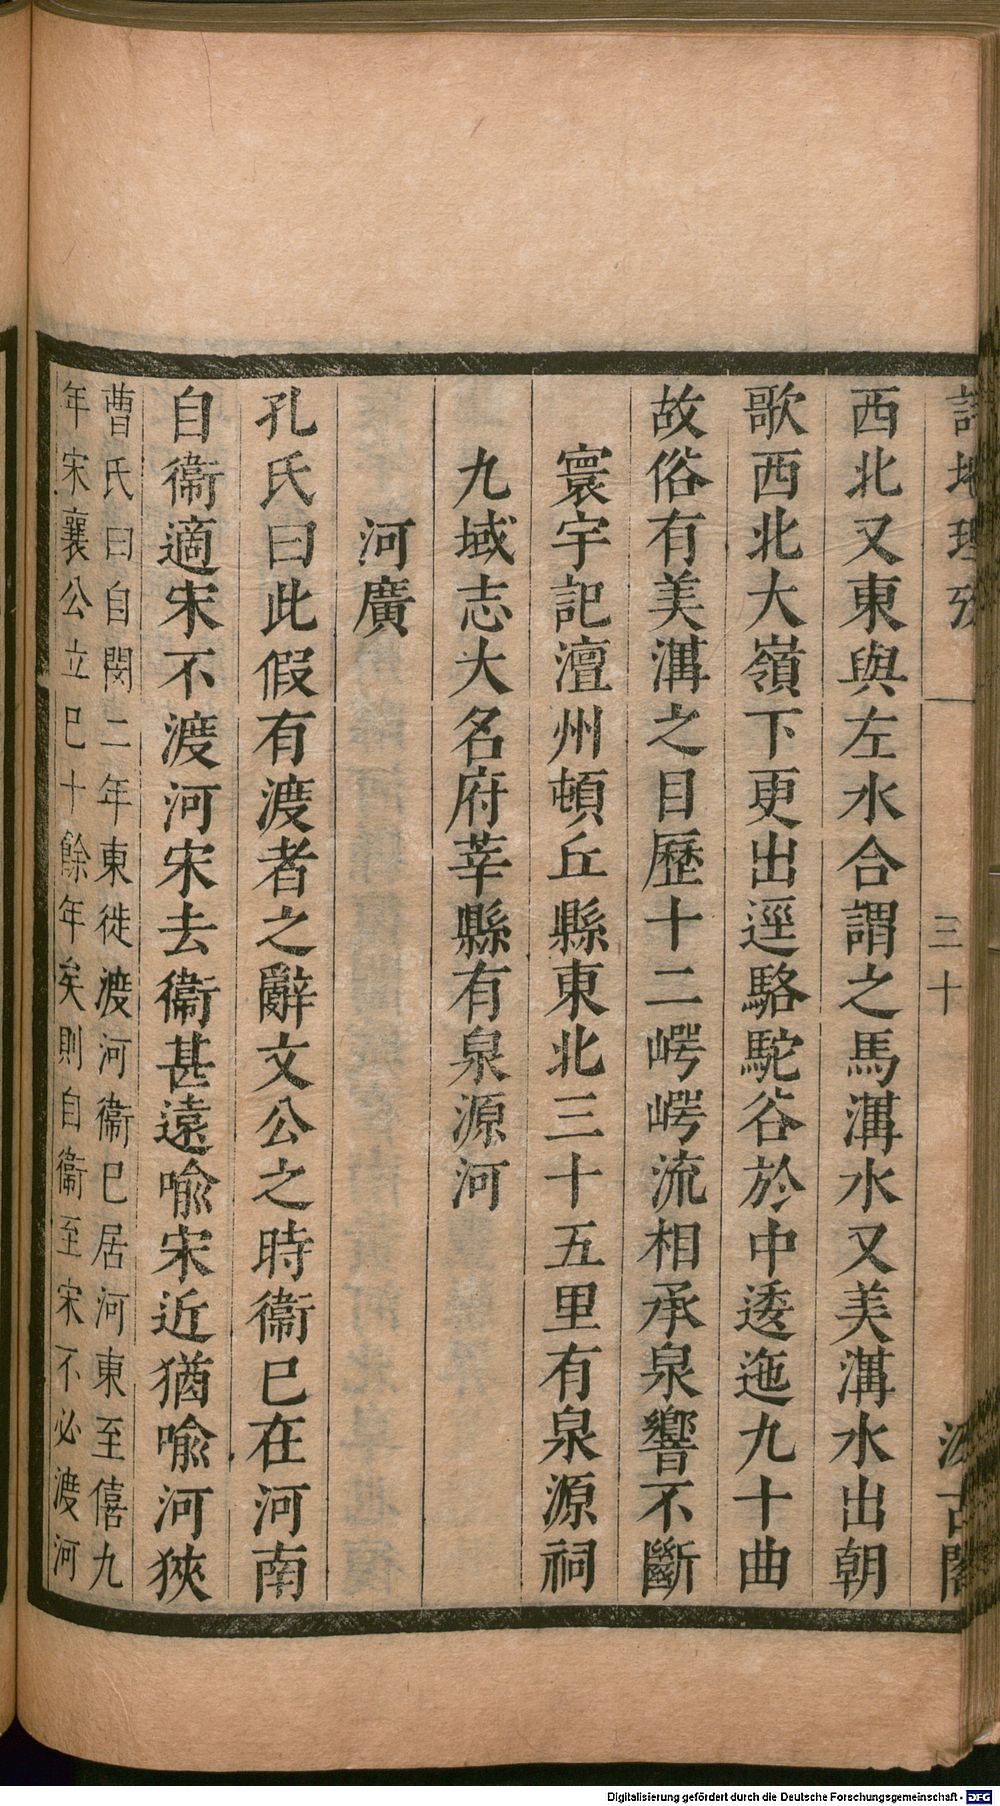 詩地理攷
三十
汲古閣
西北又東與左水合謂之馬溝水又美溝水出朝
歌西北大嶺下更出逕駱駝谷於中逶迤九十曲
故俗有美溝之目歷十二崿崿流相承泉響不斷
寰宇記澶州頓丘縣東北三十五里有泉源祠
九域志大名府莘縣有泉源河
河廣
孔氏曰此假有渡者之辭文公之時衞巳在河南
自衞適宋不渡河宋去衞甚遠喻宋近猶喻河狹
曹氏曰自閔二年東徙渡河衞巳居河東至僖九
年宋襄公立巳十餘年矣則自衞至宋不必渡河
Digitalisierung gefördert durch die Deutsche Forschungsgemeinschaft - DFG